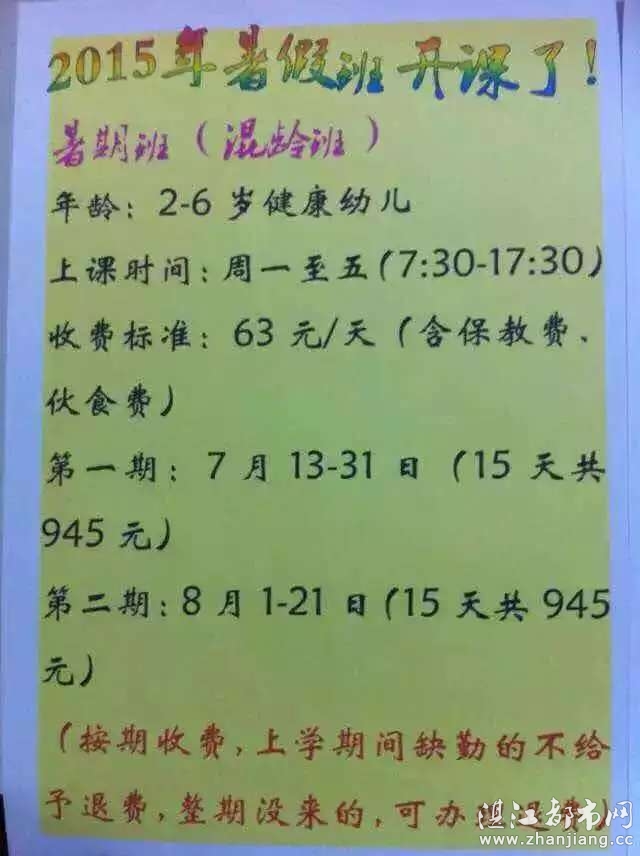 2015年暑假班开课了!
暑期班（混龄班）
年龄：2-6 岁健康幼儿
上课时间：周一至五(7:30-17:30)
收费标准：63 元/天（含保教费、
伙食费）
第一期：7 月 13-31 日（15 天共
945 元）
第二期：8 月 1-21 日(15 天共 945
元）
（按期收费,上学期间缺勤的不给
予退费,整期没来的,可办理退费）
湛江都市网
www.zhanjiang.cc